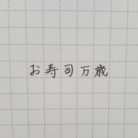 お寿司万歳